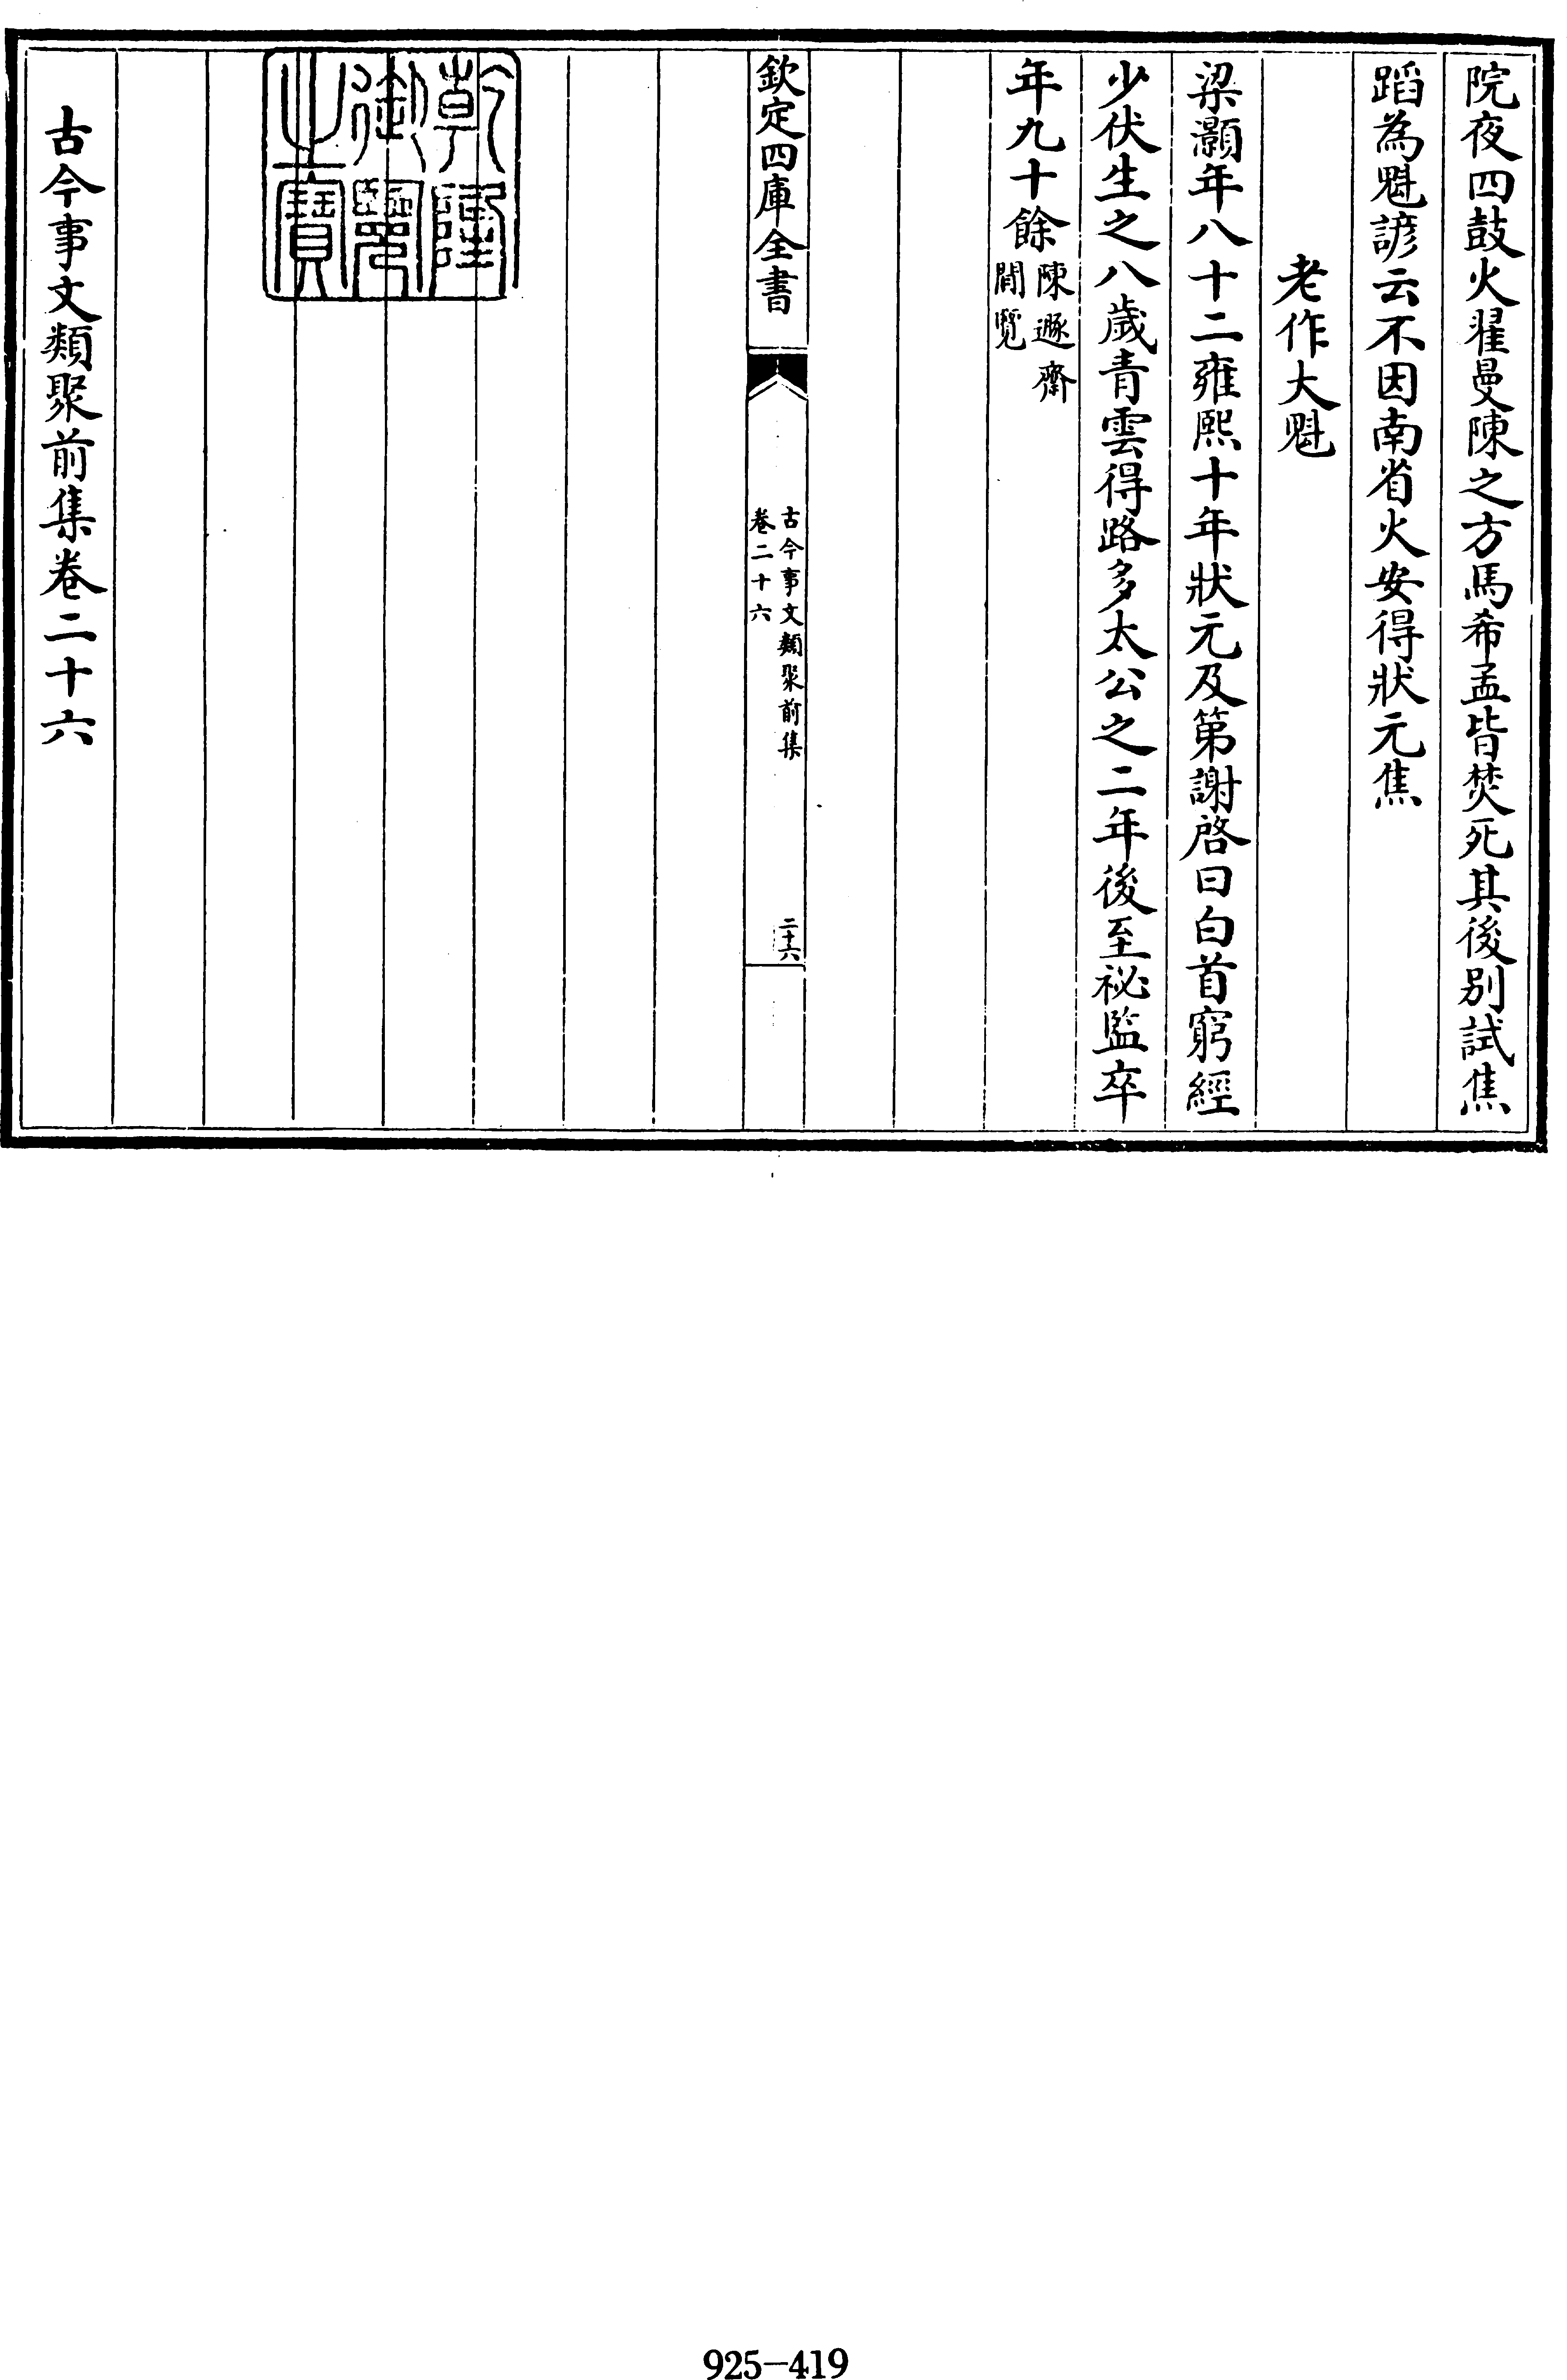 院夜四鼓火翟曼陳之方馬希孟皆焚死其後別試焦
蹈為魁諺云不因南省火安得狀元焦
老作大魁
梁灝年八十二雍熙十年狀元及第謝啓曰白首窮經
少伏生之八歲青雲得路多太公之二年後至祕監卒
年九十餘陳遯齋
閒覽
欽定四庫全書
古今事文類聚前集
卷二十六
二十六
乾隆
御覽
之寶
古今事文類聚前集卷二十六
925-419